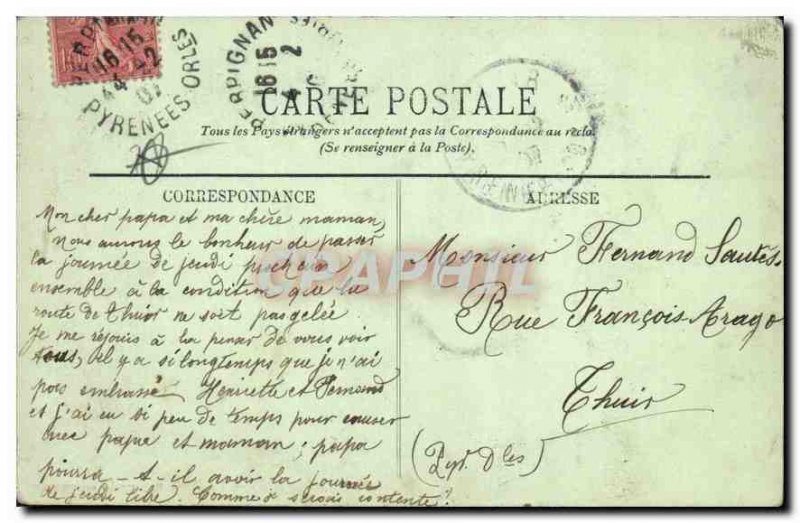 PERPIGNAN
16 15
4 -2
07
PYRENEES ORLES
PERPIGNAN
16 15
4 2
CARTE POSTALE
Tous les Pays étrangers n'acceptent pas la Correspondance au recto.
(Se renseigner à la Poste).
CORRESPONDANCE
Mon cher papa et ma chère maman,
Nous aurons le bonheur de passer
la journée de jeudi prochain
ensemble à la condition que la
route de Thuir ne soit pas gelée
Je me réjouis à la pensée de vous voir
tous, il y a si longtemps que je n'ai
pas embrassé Henriette et Fernand
et j'ai eu si peu de temps pour causer
avec papa et maman; papa
pourra-t-il avoir la journée
de jeudi libre. Comme je serais contente!
ADRESSE
Monsieur Fernand Sautés
Rue François Arago
Thuir
(Pyr. Oles)
CPAPHIL